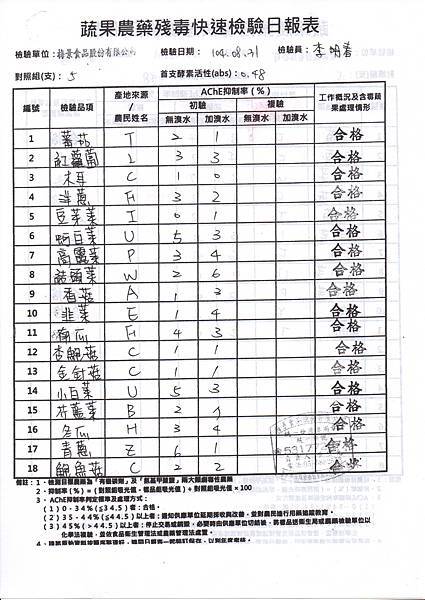 蔬果農藥殘毒快速檢驗日報表
檢驗單位： 食品股份有限公司 檢驗日期： 104.08.31 檢驗員： 李明春
對照組(支)： 5 首支酵素活性(abs)： 0.48
編號 檢驗品項 產地來源/農民姓名 AChE抑制率(%) 工作概況及含毒蔬果處理情形
初驗 複驗
無溴水 加溴水 無溴水 加溴水
1 蕃茄 T 2 1 合格
2 紅蘿蔔 L 3 3 合格
3 木耳 C 1 0 合格
4 洋蔥 H 3 2 合格
5 豆芽菜 I 0 1 合格
6 蚵白菜 U 5 3 合格
7 高麗菜 P 3 4 合格
8 結頭菜 W 2 6 合格
9 香菇 A 1 3 合格
10 韭菜 E 1 4 合格
11 瓜 H 4 3 合格
12 杏鮑菇 C 1 1 合格
13 金針菇 C 1 1 合格
14 小白菜 U 5 3 合格
15 芥藍菜 B 2 合格
16 冬瓜 H 3 4 合格
17 青蔥 Z 6 1 合格
18 鮑魚菇 C 2 2 合格
備註：1、檢測目標農藥為「有機磷劑」及「氨基甲酸鹽」兩大類劇毒性農藥
2、抑制率(%)=(對照組吸光值-樣品組吸光值)÷對照組吸光值×100
3、AChE抑制率判定標準及處理方式：
(1) 0-34%(≦34.5)者：合格。
(2) 35-44%(≦44.5)以上者：通知供應單位延期採收與改善，並對農民進行用藥追蹤教育。
(3) 45%(>44.5)以上者：停止交易或銷毀，必要時由供應單位切結後，將樣品送衛生局或農藥檢驗單位以
化學法複驗，並依食品衛生管理法或農藥管理法處置。